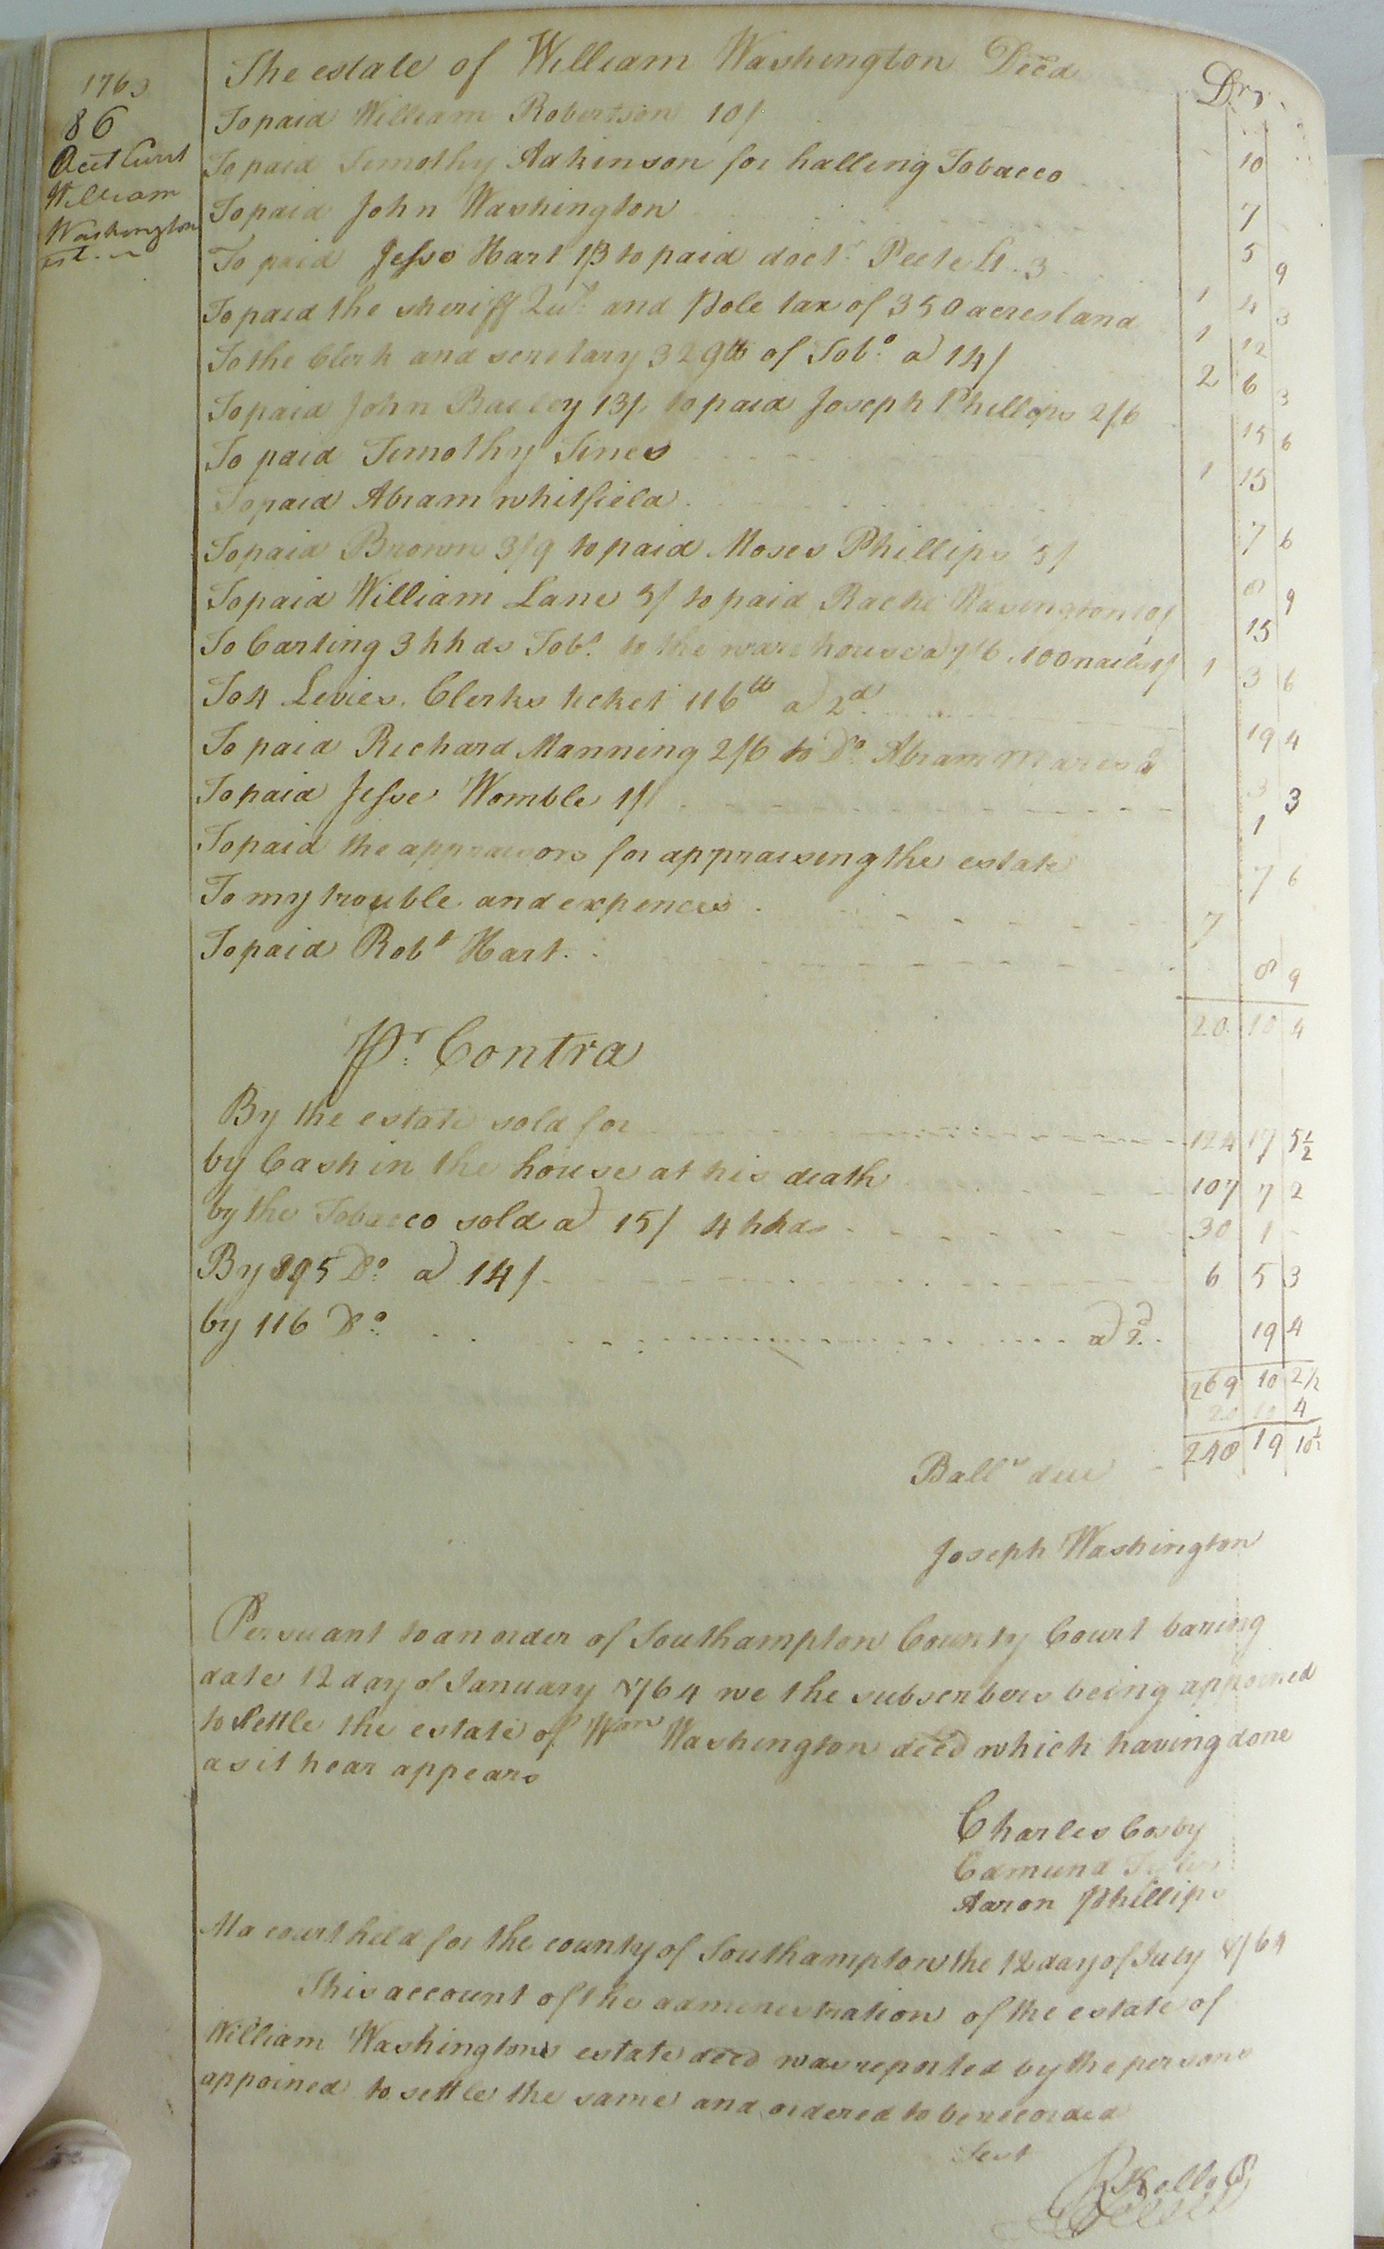 1763
86
Acct Curt
William
Washington
est.
The estate of William Washington Decd Dr
To paid William Robertson 10/ 10
To paid Timothy Adkinson for halling Tobacco 7
To paid John Washington 5 9
To paid Jesse Hart 1/3 to paid doctr. Peete 1 4 3
To paid the sheriff and Pole tax of 350 acres land 1 12
To the Clerk and secretary 329lb of Tobo. a 14/ 2 6 3
To paid John Bailey 13/ to paid Joseph Phillips 2/6 15 6
To paid Timothy Tines 1 15
To paid Abram whitfield 7 6
To paid Brown 3/9 to paid Moses Phillips 5/ 8 9
To paid William Lane 5/ to paid 10/ 15
To Carting 3 hhds Tobo. to the ware house a 7/6 100 nails 1/ 1 3 6
To 4 Levies. Clerks ticket 116lb a 2d 19 4
To paid Richard Manning 2/6 to Do. Abram 3 3
To paid Jesse Womble 1/ 1
To paid the appraisors for appraising the estate 7 6
To my trouble and expences 7
To paid Robt Hart 8 9
20 10 4
Pr. Contra
By the estate sold for 124 17 5½
by Cash in the house at his death 107 7 2
by the Tobacco sold a 15/ 4 hhds 30 1 -
By 895 Do. a 14/ 6 5 3
by 116 Do. a 2d. 19 4
269 10 2½
20 10 4
248 19 10½
Balle due
Joseph Washington
Persuant to an order of Southampton County Court baring
date 12 day of January 1764 we the subscribers being appoined
to settle the estate of Wm Washington decd which having done
as it hear appears
Charles Cosby
Edmund
Aaron Phillips
At a court held for the county of Southampton the 12 day of July 1764
This account of the administration of the estate of
William Washingtons estate decd was reported by the persons
appoined to settle the same and ordered to be recorded
Test
R Kello C